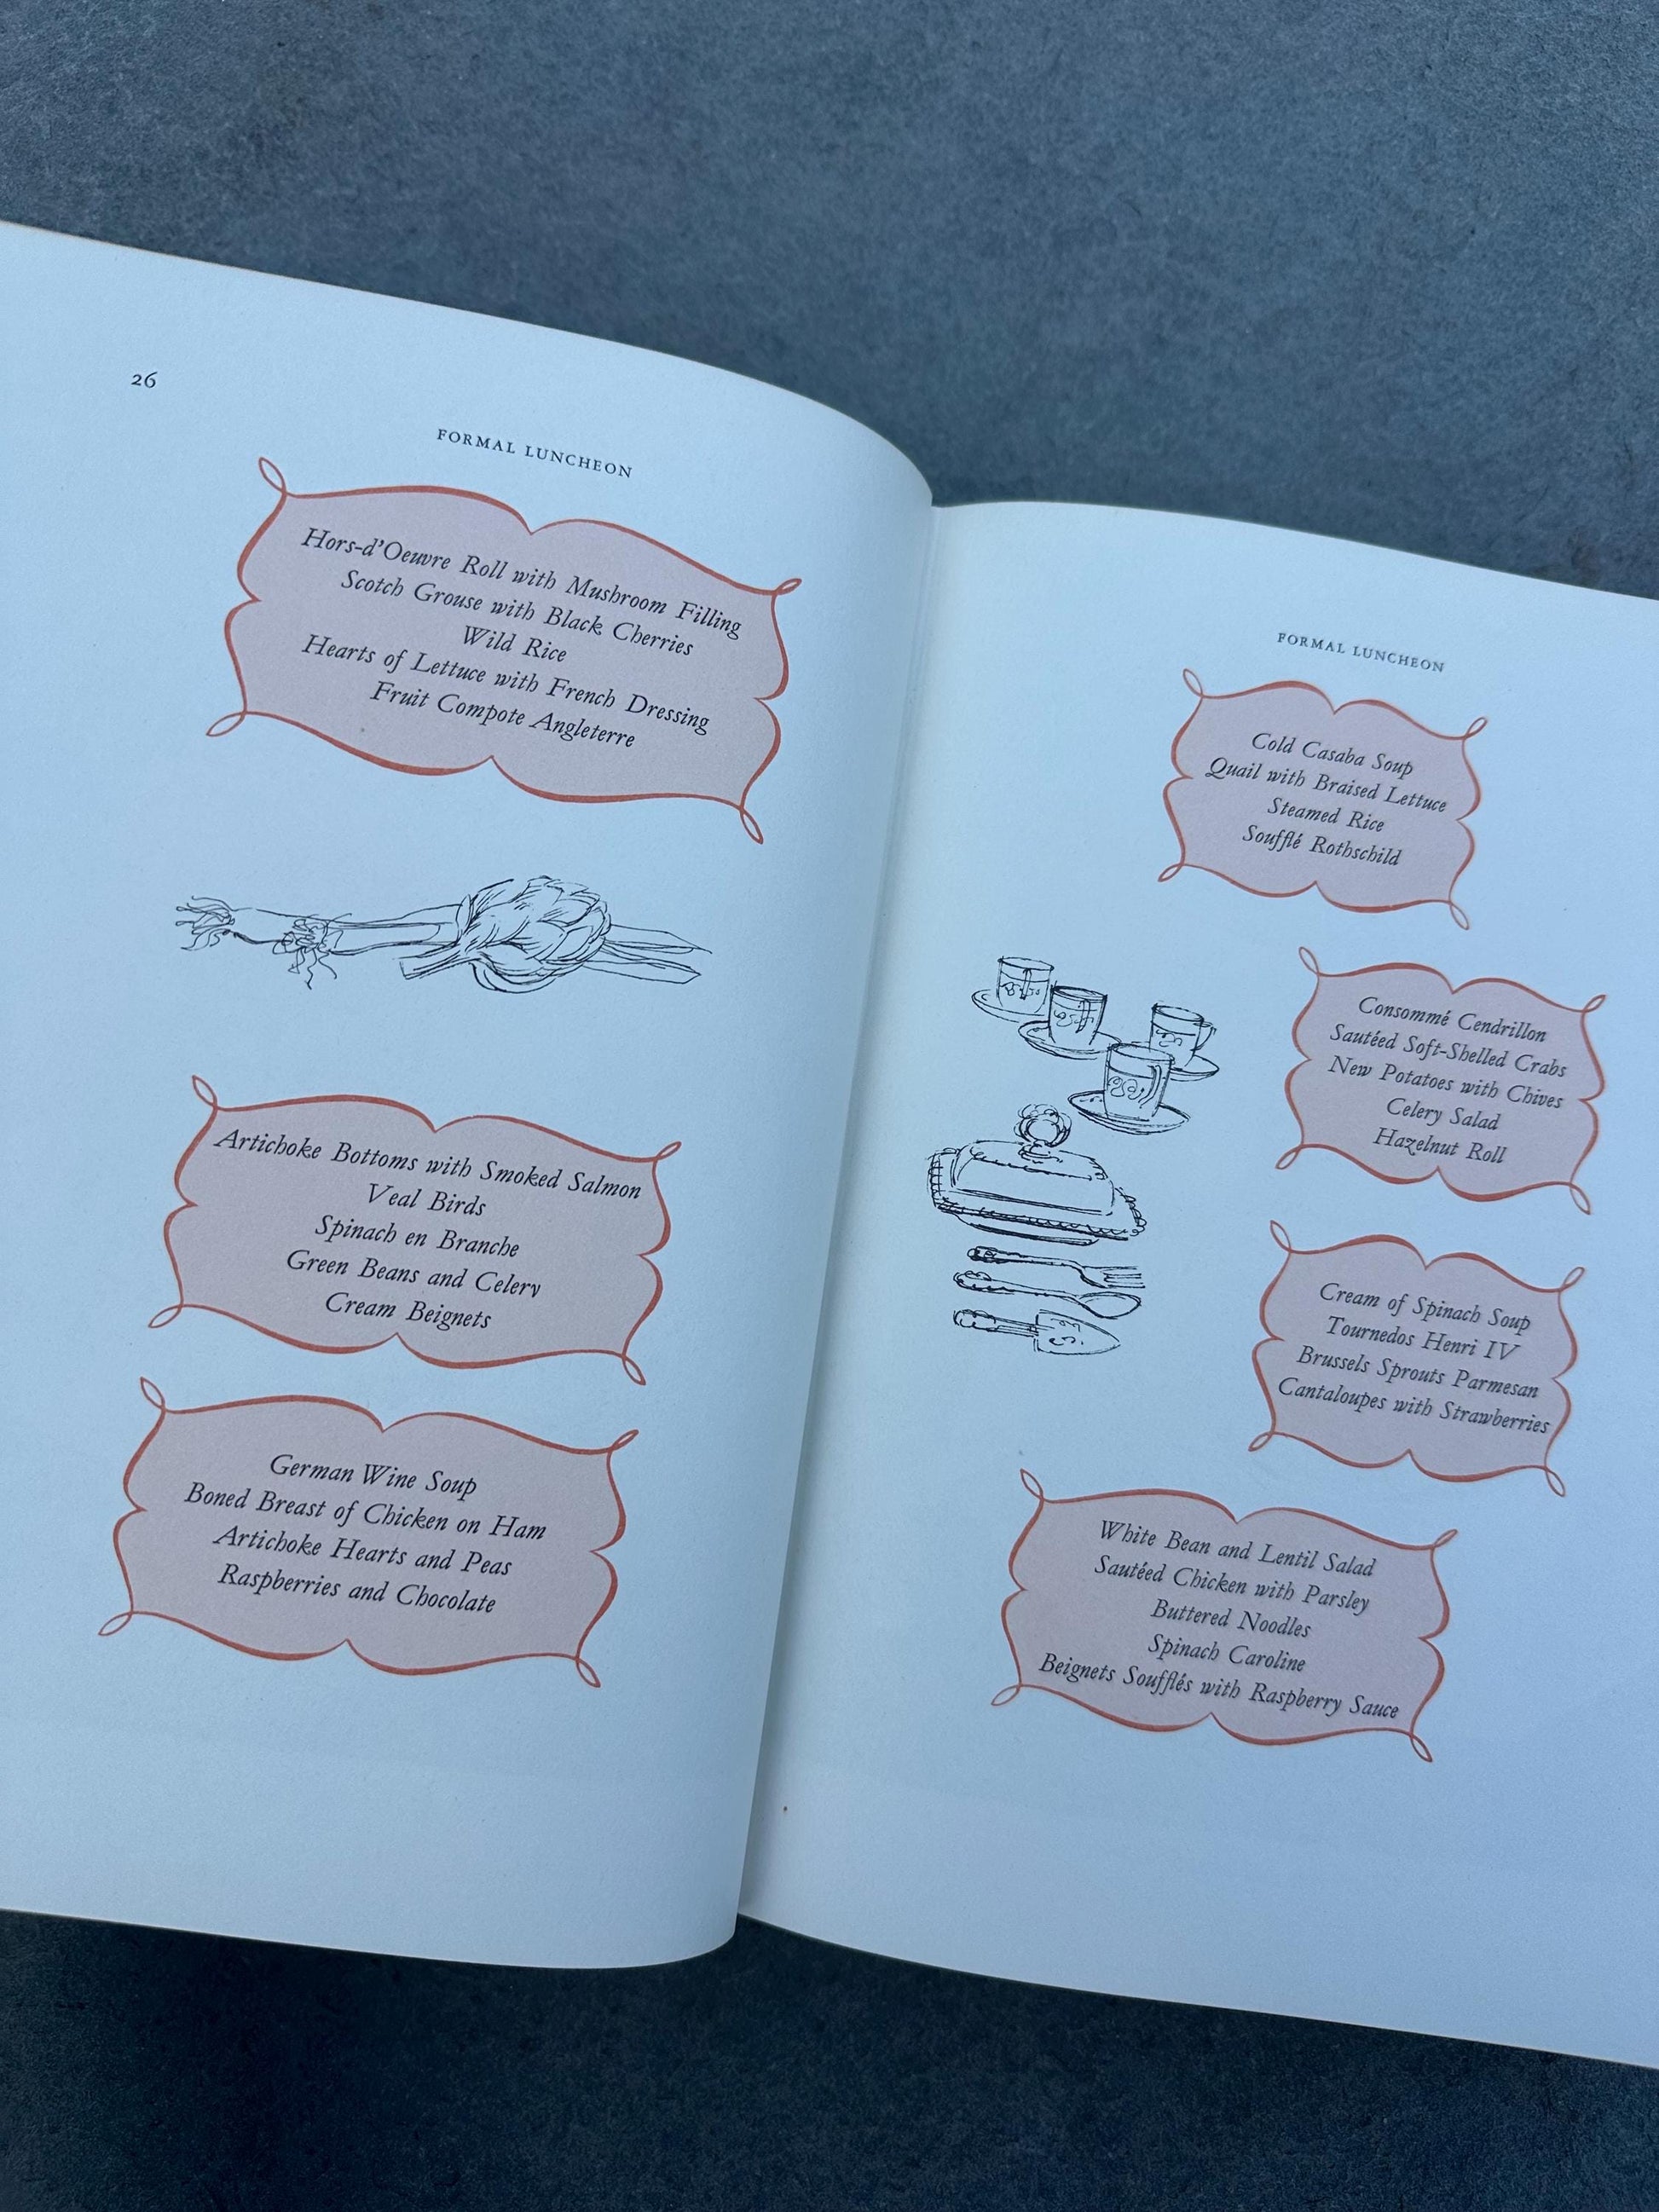 26
FORMAL LUNCHEON
Hors-d'Oeuvre Roll with Mushroom Filling
Scotch Grouse with Black Cherries
Wild Rice
Hearts of Lettuce with French Dressing
Fruit Compote Angleterre
Artichoke Bottoms with Smoked Salmon
Veal Birds
Spinach en Branche
Green Beans and Celery
Cream Beignets
German Wine Soup
Boned Breast of Chicken on Ham
Artichoke Hearts and Peas
Raspberries and Chocolate
FORMAL LUNCHEON
Cold Casaba Soup
Quail with Braised Lettuce
Steamed Rice
Soufflé Rothschild
Consommé Cendrillon
Sautéed Soft-Shelled Crabs
New Potatoes with Chives
Celery Salad
Hazelnut Roll
Cream of Spinach Soup
Tournedos Henri IV
Brussels Sprouts Parmesan
Cantaloupes with Strawberries
White Bean and Lentil Salad
Sautéed Chicken with Parsley
Buttered Noodles
Spinach Caroline
Beignets Soufflés with Raspberry Sauce